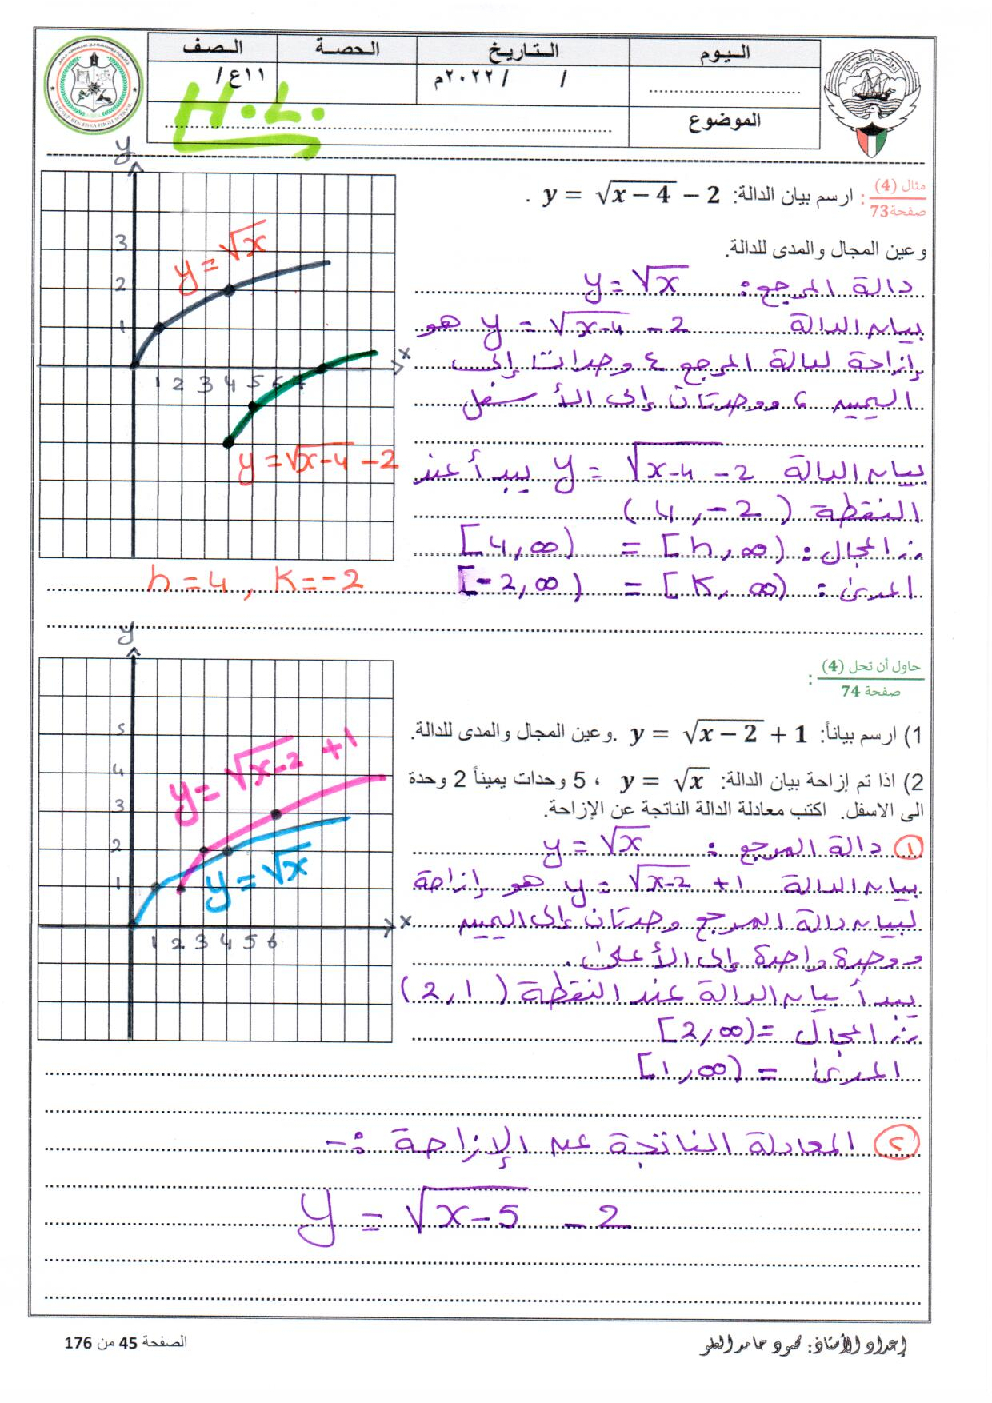 اليوم التاريخ الحصة الصف
/ / ٢٠٢٢م ١١ع/
الموضوع
H.L.
مثال (4)
صفحة 73
: ارسم بيان الدالة: y = √(x − 4) − 2 .
وعين المجال والمدى للدالة.
دالة المرجع: y = √x
بيان الدالة y = √(x-4) - 2 هو
إزاحة لدالة المرجع ٤ وحدات إلى
اليمين ، ووحدتان إلى الأسفل
بيان الدالة y = √(x-4) - 2 يبدأ عند
النقطة (4, -2)
∴ المجال: [h, ∞) = [4, ∞)
المدى: [k, ∞) = [-2, ∞)
y
3
2
1
1 2 3 4 5 6 7
x
y = √x
y = √(x-4) - 2
h = 4 , k = -2
حاول أن تحل (4)
صفحة 74
:
1) ارسم بيانياً: y = √(x − 2) + 1 .وعين المجال والمدى للدالة.
2) اذا تم إزاحة بيان الدالة: y = √x ، 5 وحدات يميناً 2 وحدة
الى الاسفل. اكتب معادلة الدالة الناتجة عن الإزاحة.
① دالة المرجع: y = √x
بيان الدالة y = √(x-2) + 1 هو إزاحة
لبيان دالة المرجع وحدتان إلى اليمين
ووحدة واحدة إلى الأعلى.
يبدأ بيان الدالة عند النقطة (2, 1)
∴ المجال = [2, ∞)
المدى = [1, ∞)
y
5
4
3
2
1
1 2 3 4 5 6
x
y = √(x-2) + 1
y = √x
② المعادلة الناتجة عن الإزاحة :-
y = √(x-5) - 2
إعداد الأستاذ: محمود حامد العلو
الصفحة 45 من 176